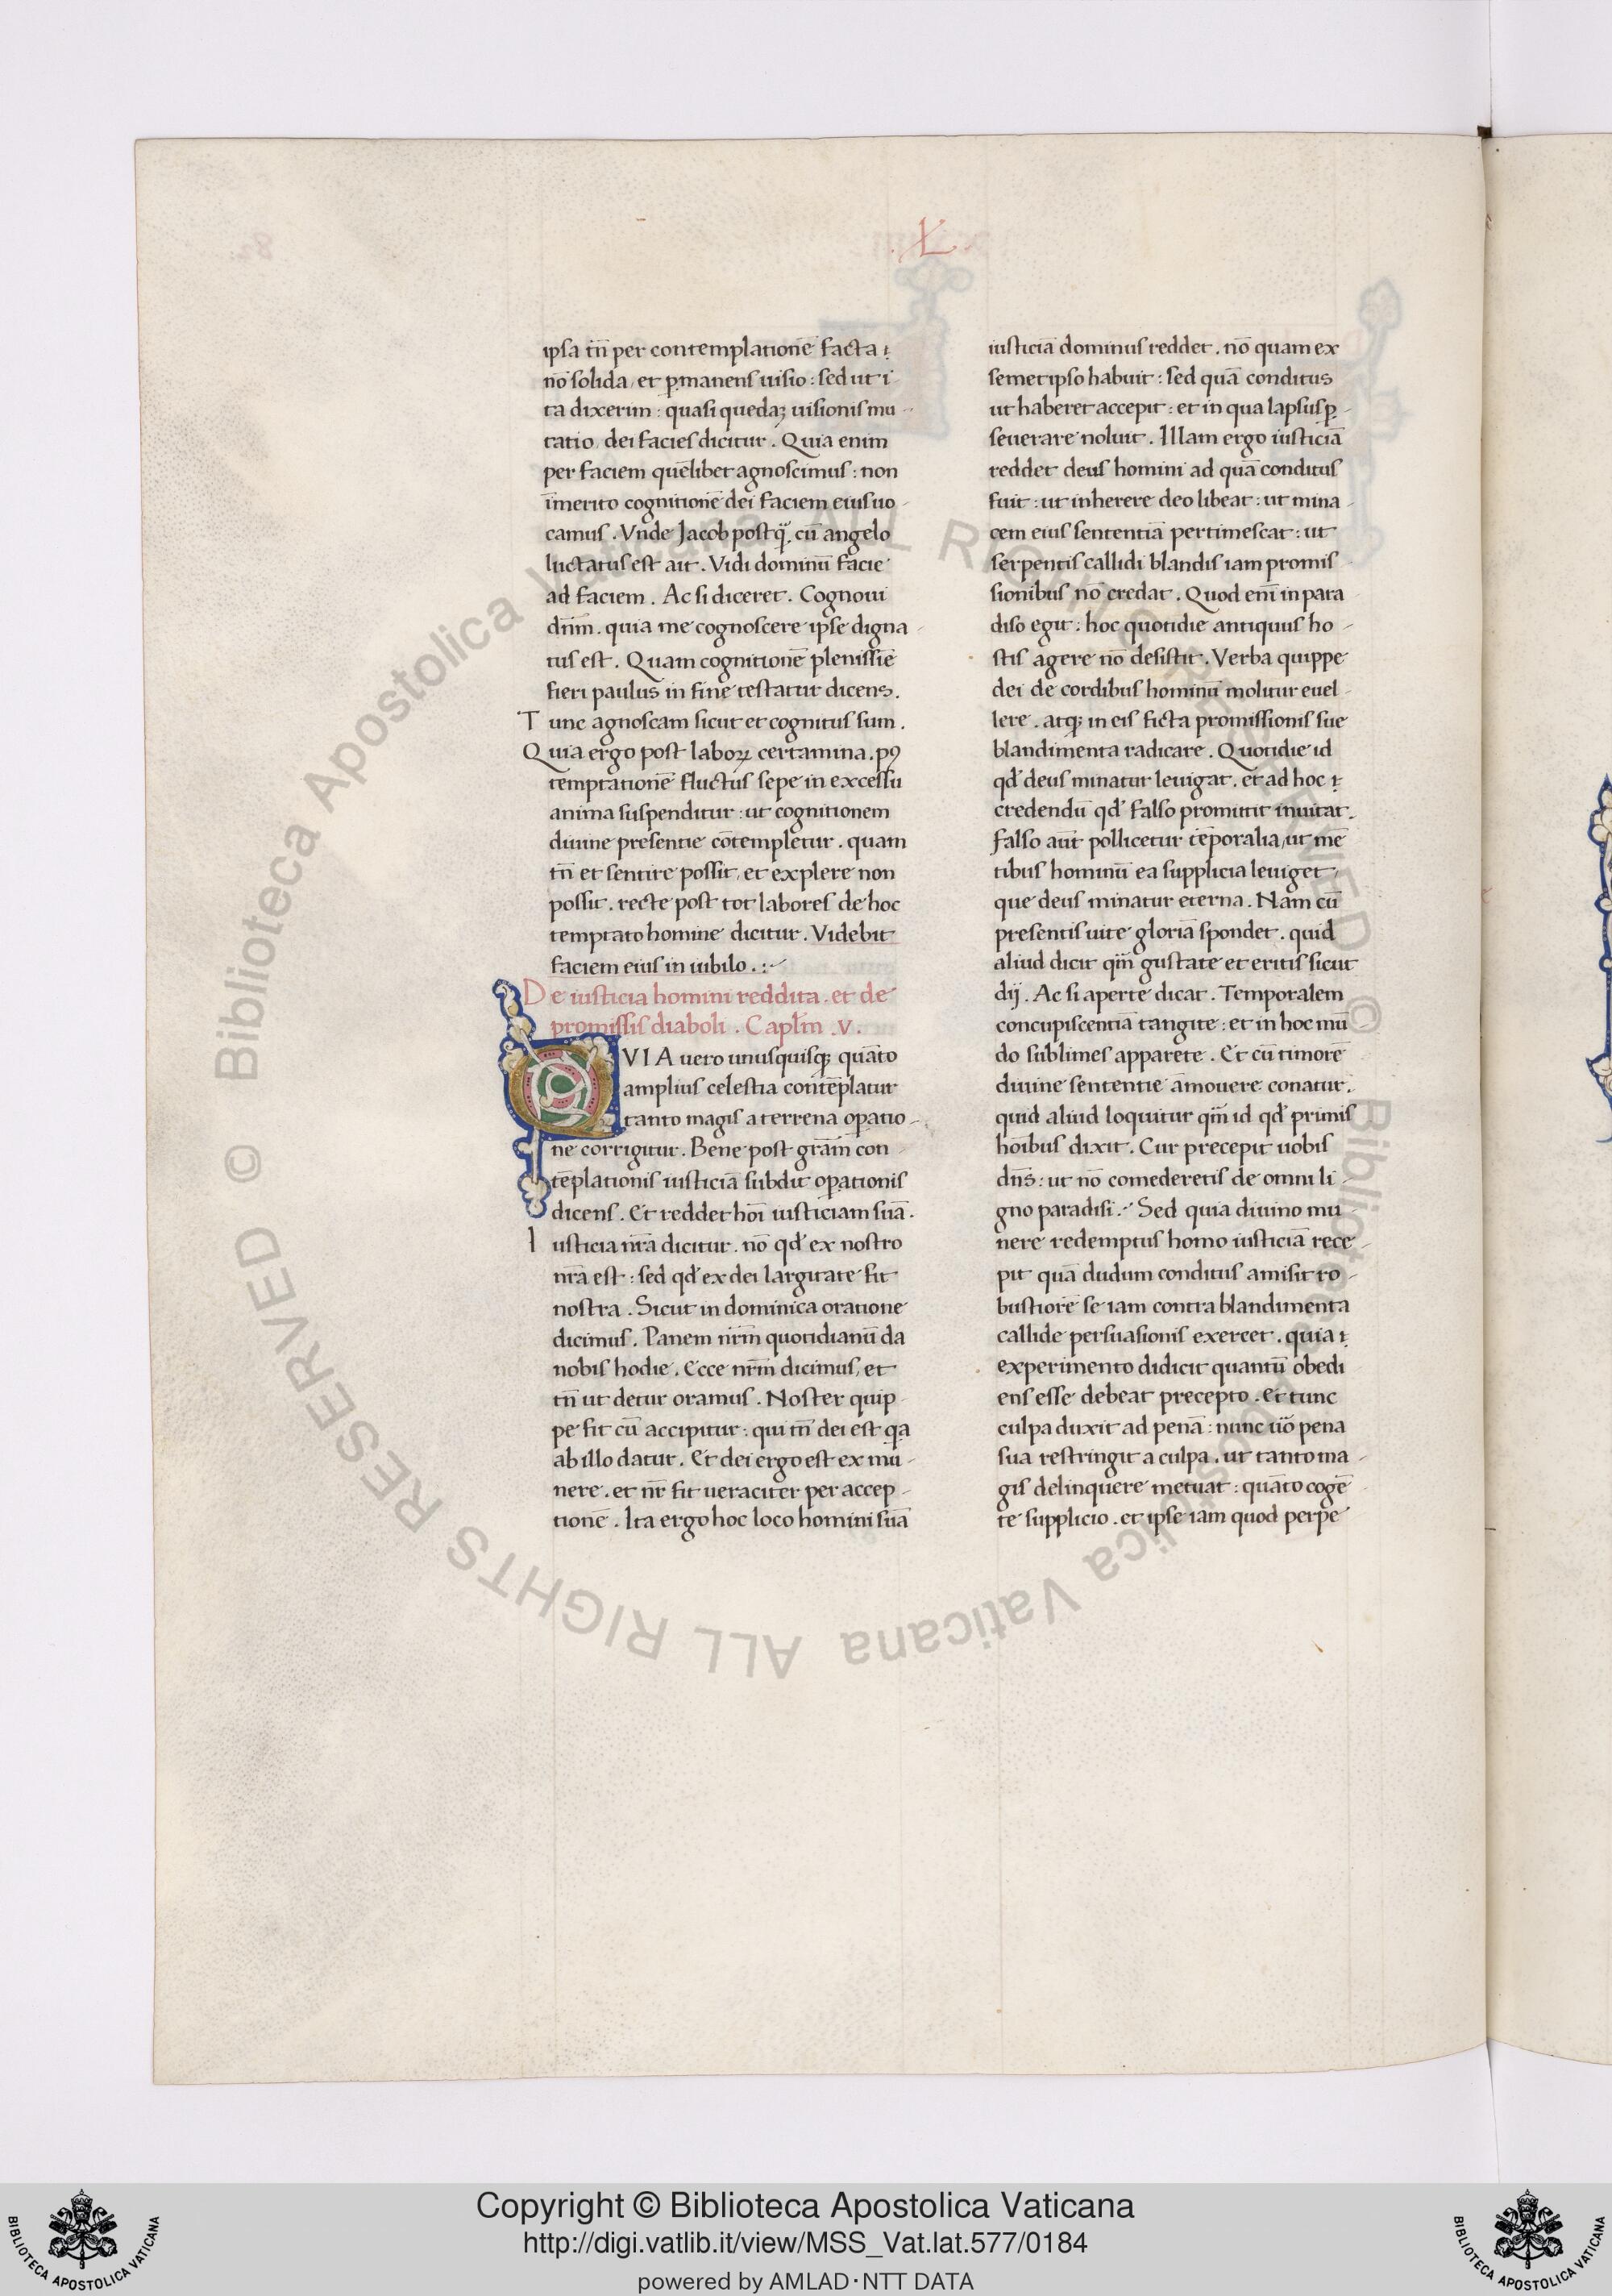 .XL.
ipsa tn̄ per contemplationē facta ⁊
nō solida, et ꝑmanens uisio : sed ut i
ta dixerim : quasi quedaꝫ uisionis mu-
tatio, dei facies dicitur . Quia enim
per faciem quēlibet agnoscimus : non
īmerito cognitionē dei faciem eius uo-
camus . Vnde Jacob postq̃. cū angelo
luctatus est ait . Vidi dominū facie
ad faciem . Ac si diceret . Cognoui
dn̄m . quia me cognoscere ipse digna-
tus est . Quam cognitionē plenissīe
fieri paulus in fine testatur dicens .
Tunc agnoscam sicut et cognitus sum .
Quia ergo post laboꝝ certamina . pꝰ
temptationē fluctus sepe in excessu
anima suspenditur : ut cognitionem
diuine presentie cōtempletur . quam
tn̄ et sentire possit, et explere non
possit . recte post tot labores de hoc
temptato homine dicitur . Videbit
faciem eius in iubilo . :~
De iusticia homini reddita . et de
promissis diaboli . Caplm̄ .v.
QVIA uero unusquisqꝫ quāto
amplius celestia contēplatur
tanto magis a terrena oꝑatio-
ne corrigitur . Bene post grām con-
tēplationis iusticiā subdit oꝑationis
dicens . Et reddet hoī iusticiam suā .
Iusticia nr̄a dicitur . nō qđ ex nostro
nr̄a est : sed qđ ex dei largitate fit
nostra . Sicut in dominica oratione
dicimus . Panem nr̄m quotidianū da
nobis hodie . Ecce nr̄m dicimus, et
tn̄ ut detur oramus . Noster quip
pe fit cū accipitur : qui tn̄ dei est qa
ab illo datur . Et dei ergo est ex mu-
nere . et nr̄ fit ueraciter per accep-
tionē . Ita ergo hoc loco homini suā
iusticiā dominus reddet . nō quam ex
semetipso habuit : sed quā conditus
ut haberet accepit : et in qua lapsus ꝑ-
seuerare noluit . Illam ergo iusticiā
reddet deus homini ad quā conditus
fuit : ut inherere deo libeat : ut mina-
cem eius sententiā pertimescat : ut
serpentis callidi blandis iam promis-
sionibus nō credat . Quod enī in para
diso egit : hoc quotidie antiquus ho-
stis agere nō desistit . Verba quippe
dei de cordibus hominū molitur euel-
lere . atqꝫ in eis ficta promissionis sue
blandimenta radicare . Quotidie id
qđ deus minatur leuigat . et ad hoc ⁊
credendū qđ falso promittit inuitat .
Falso aūt pollicetur tēporalia, ut mē
tibus hominū ea supplicia leuiget,
que deus minatur eterna . Nam cū
presentis uite gloriā spondet . quid
aliud dicit qm̄ gustate et eritis sicut
dij . Ac si aperte dicat . Temporalem
concupiscentiā tangite : et in hoc mū-
do sublimes apparete . Et cū timorē
diuine sententie āmouere conatur .
quid aliud loquitur qm̄ id qđ primis
hoībus dixit . Cur precepit uobis
dn̄s : ut nō comederetis de omni li-
gno paradisi .~ Sed quia diuino mu-
nere redemptus homo iusticiā rece-
pit quā dudum conditus amisit ro-
bustiorē se iam contra blandimenta
callide persuasionis exercet . quia ⁊
experimento didicit quantū obedi
ens esse debeat precepto . Et tunc
culpa duxit ad penā : nunc uō pena
sua restringit a culpa . ut tanto ma-
gis delinquere metuat : quāto cogē
te supplicio . et ipse iam quod perpe
Copyright © Biblioteca Apostolica Vaticana
http://digi.vatlib.it/view/MSS_Vat.lat.577/0184
powered by AMLAD·NTT DATA
BIBLIOTECA APOSTOLICA VATICANA
BIBLIOTECA APOSTOLICA VATICANA
© Biblioteca Apostolica Vaticana ALL RIGHTS RESERVED © Biblioteca Apostolica Vaticana ALL RIGHTS RESERVED